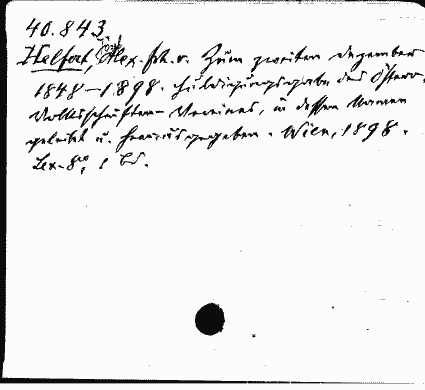 40.843.
Helfert, Alex. frh. v. Zum zweiten dezember
1848-1898. Huldigungsgabe des österr.
Volksschriften-Vereines, in dessen Namen
geleitet u. herausgegeben. Wien, 1898.
Lex-8°, 1 Bd.